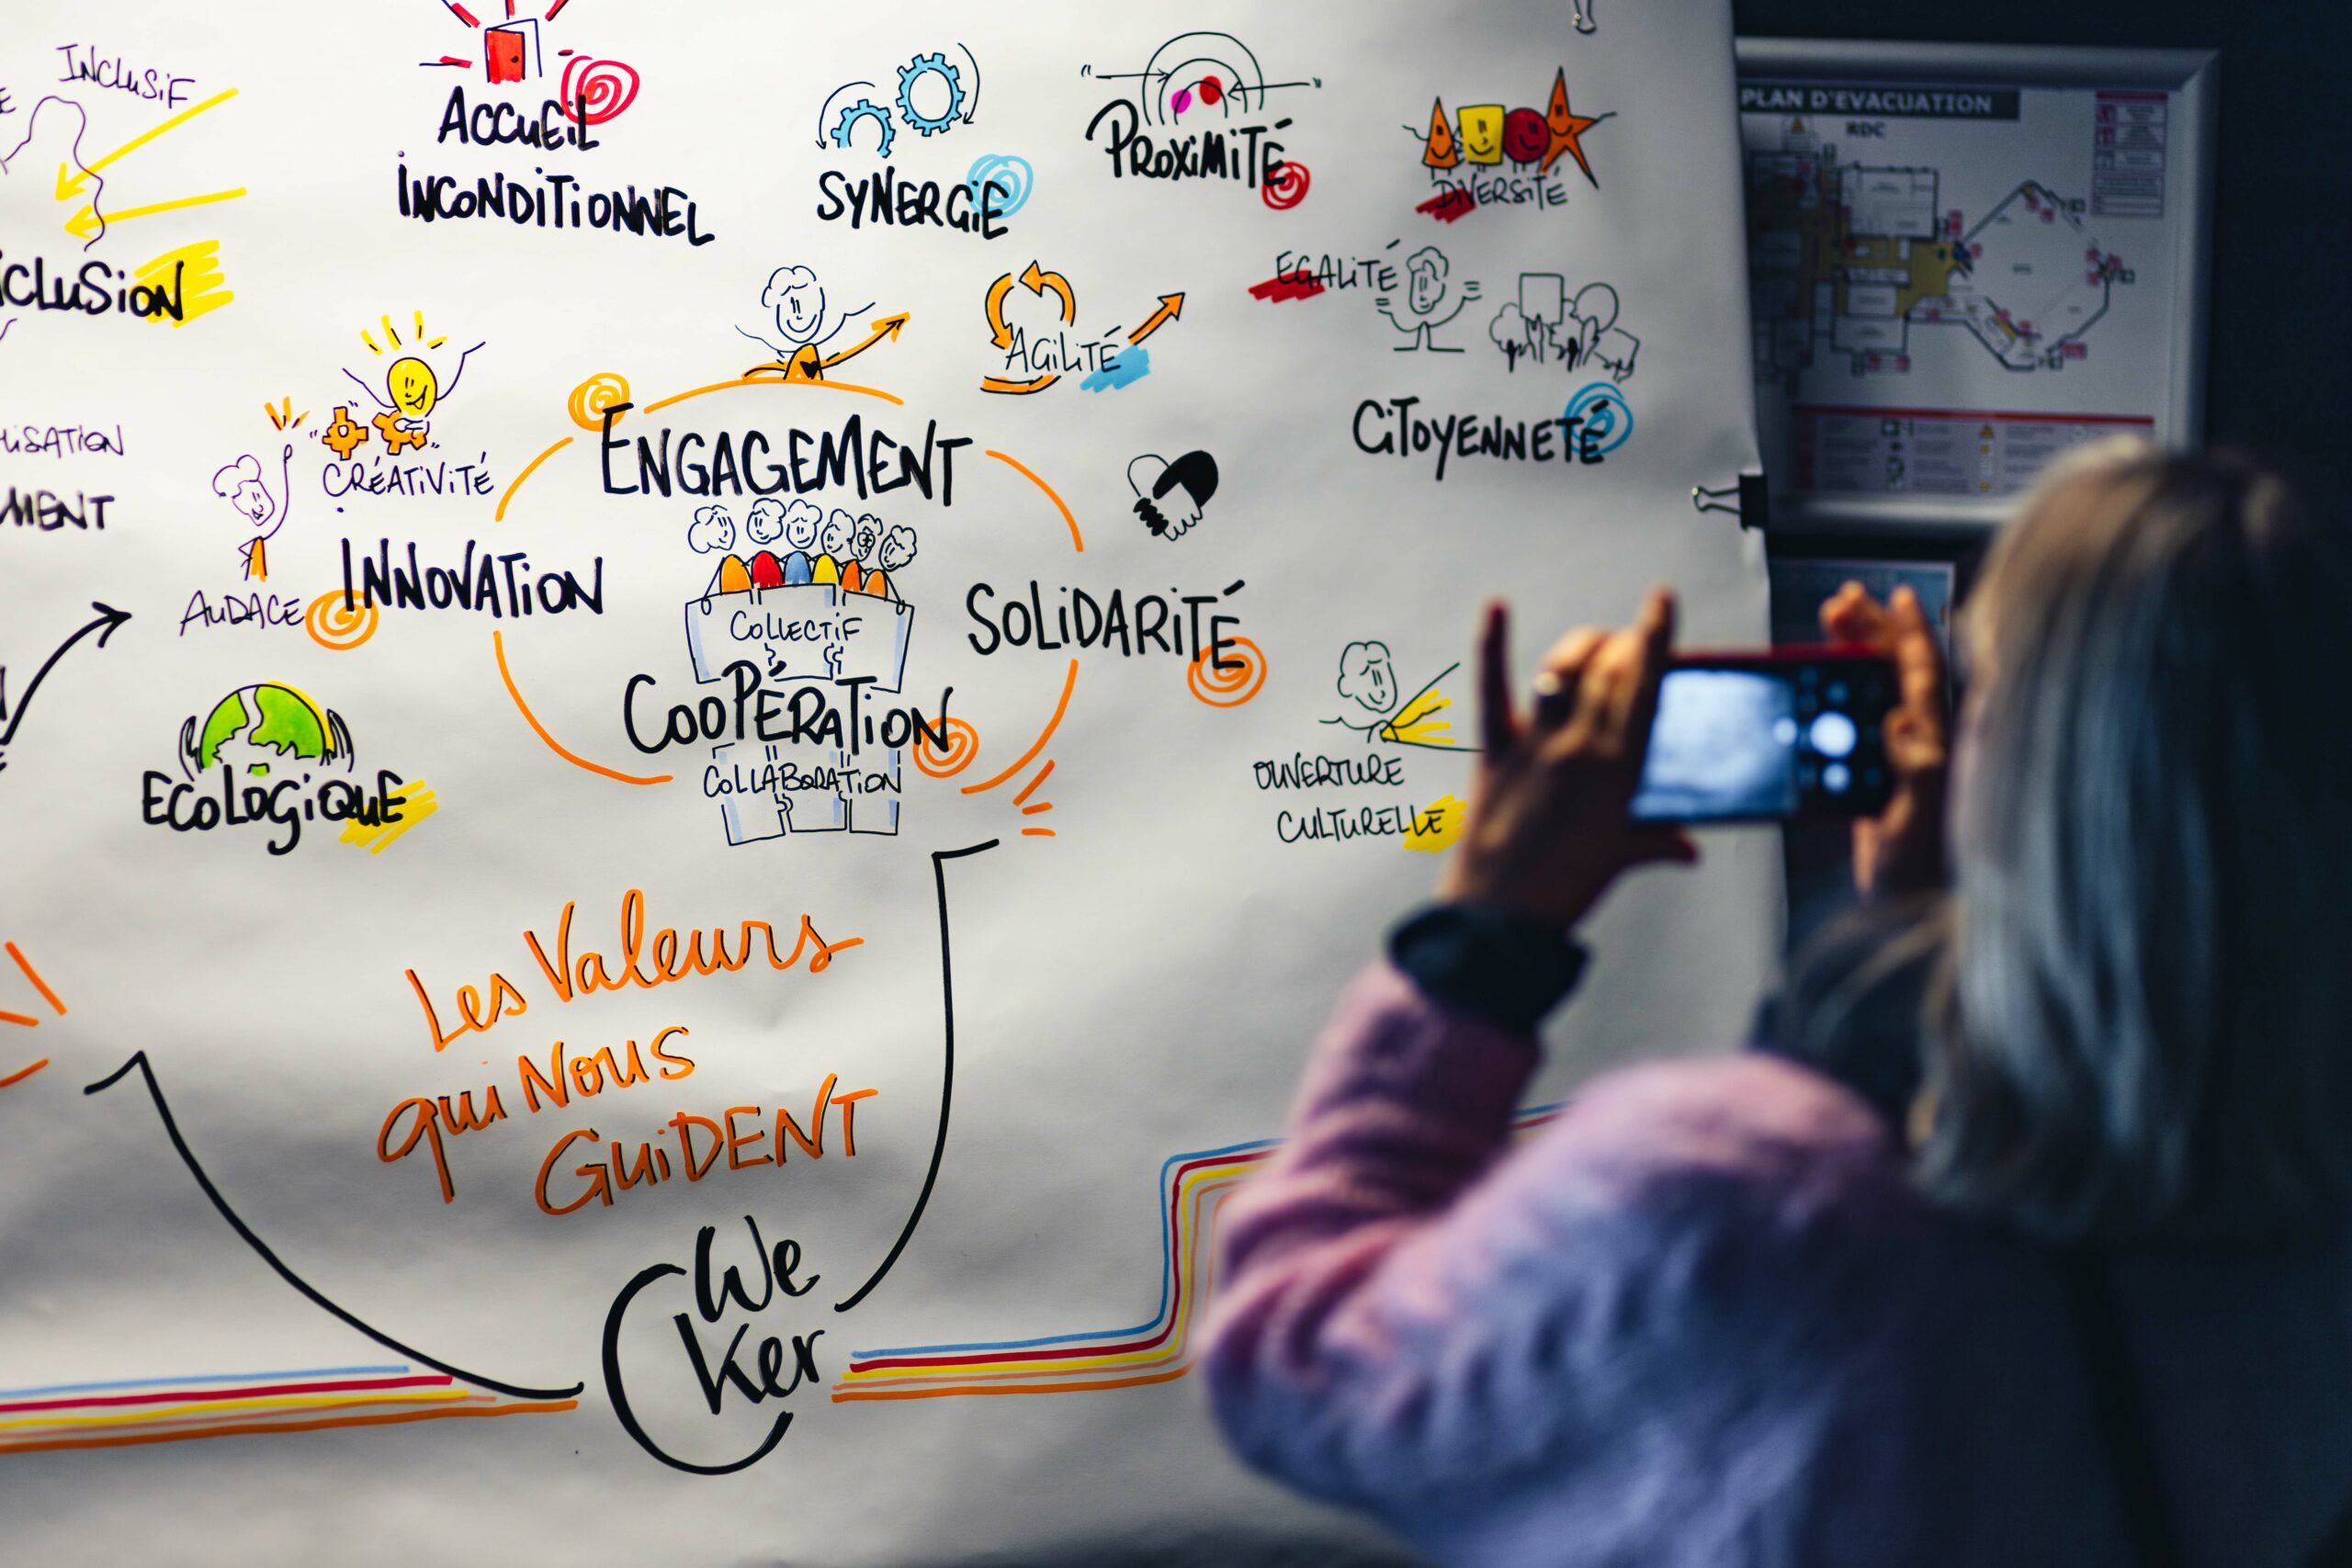 INCLUSIF
ACCUEIL
INCONDITIONNEL
SYNERGIE
PROXIMITÉ
DIVERSITÉ
PLAN D'EVACUATION
RDC
EGALITÉ
AGILITÉ
CITOYENNETÉ
ENGAGEMENT
CRÉATIVITÉ
INNOVATION
AUDACE
COLLECTIF
SOLIDARITÉ
COOPÉRATION
COLLABORATION
ECOLOGIQUE
OUVERTURE
CULTURELLE
Les Valeurs
qui Nous
GUIDENT
We
Ker